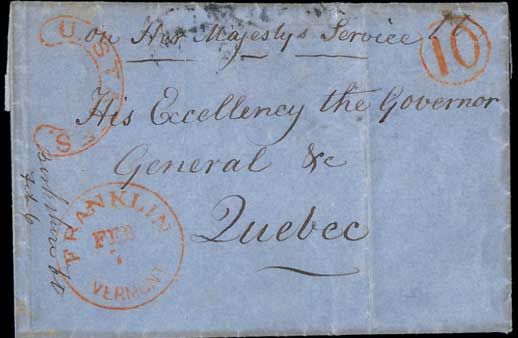 on Her Majesty's Service
10
U. STATES.
His Excellency the Governor
General &c
Quebec
FRANKLIN
FEB
VERMONT
Feb 6